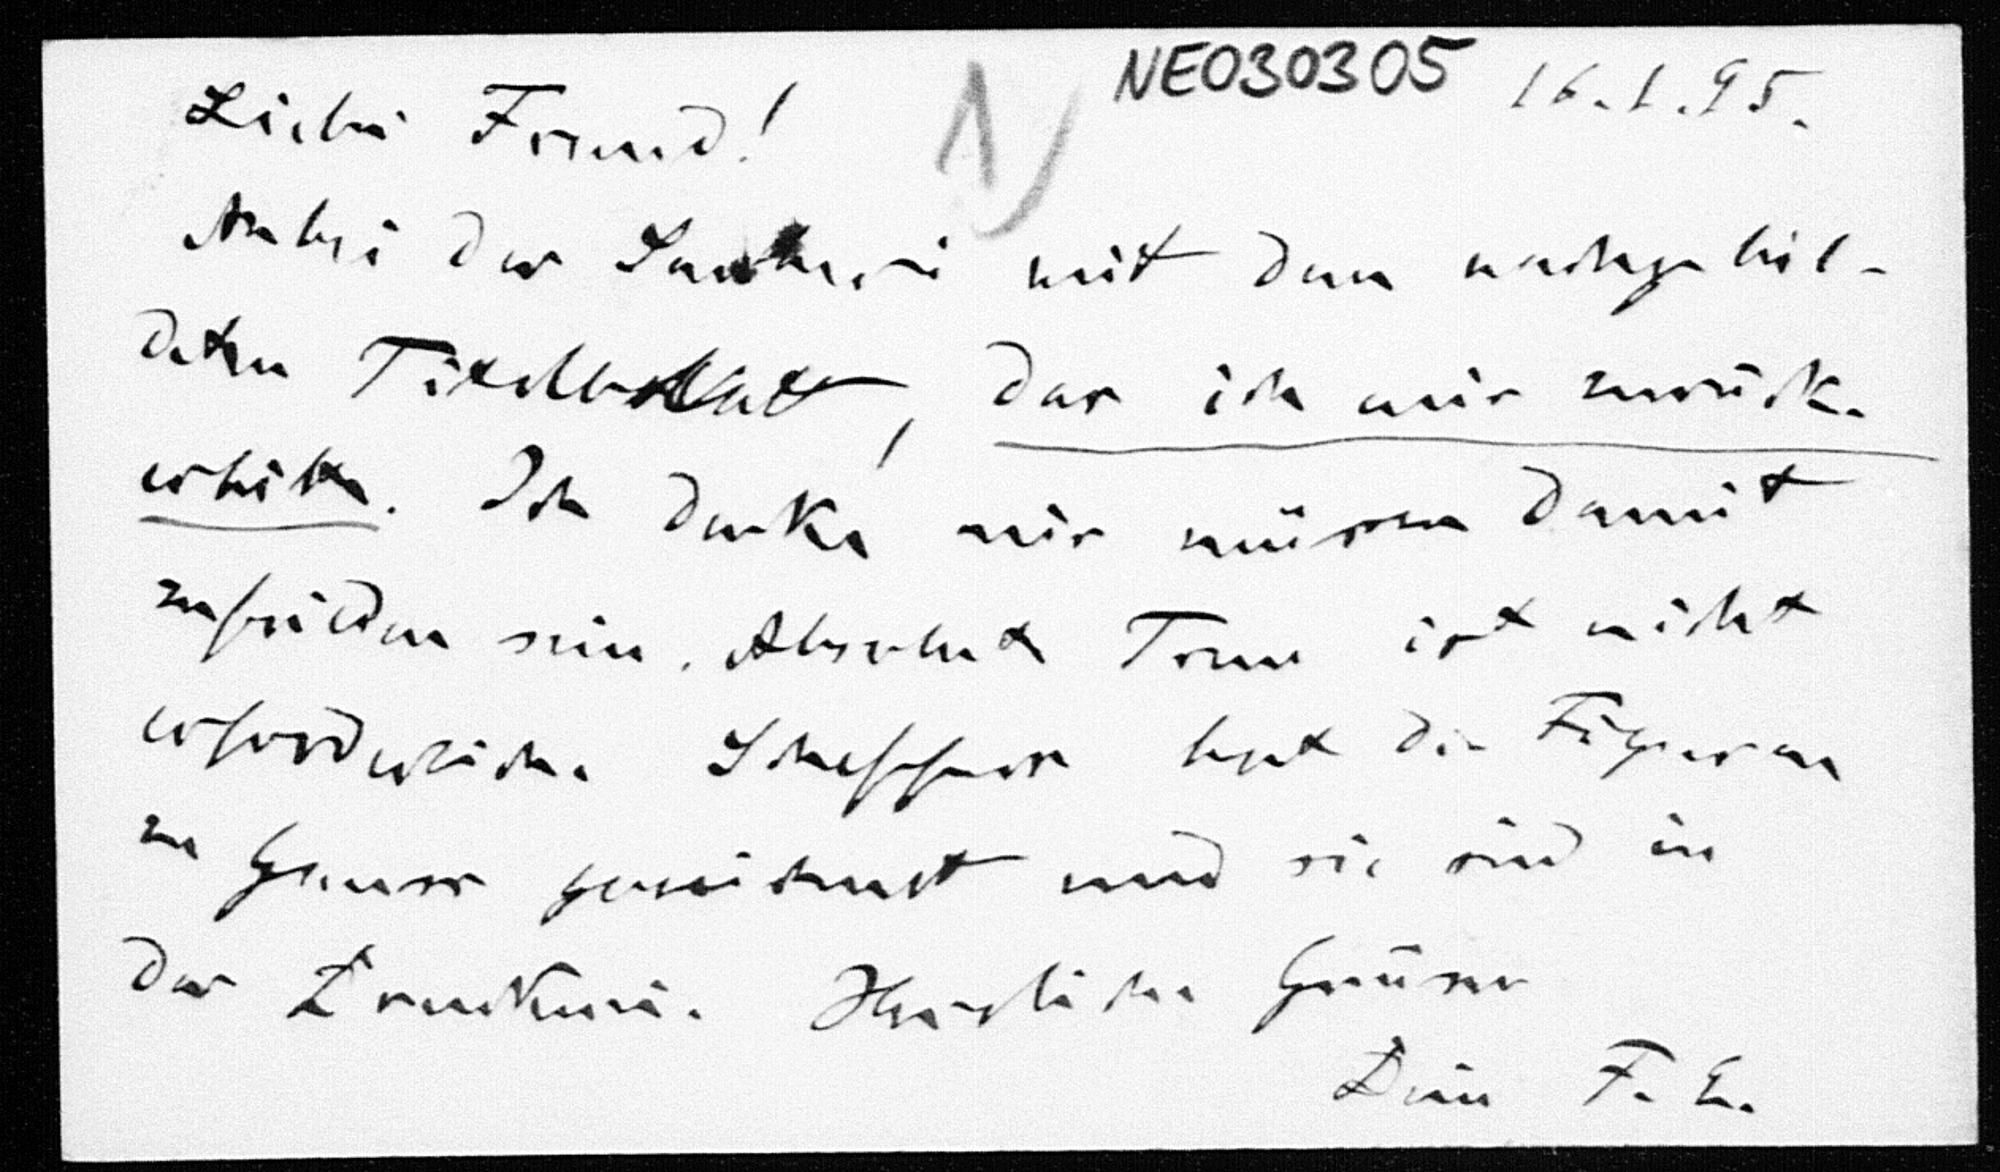 NE030305 16.1.95.
1)
Lieber Freund!
Anbei der mit dem nachgebil-
deten Titelblatt, das ich mir zurück-
erbitte. Ich denke wir müssen damit
zufrieden sein. Absolute Treue ist nicht
erforderlich. Scheffers hat die Figuren
zu Gauss gezeichnet und sie sind in
der Druckerei. Herzliche Grüsse
Dein F. E.